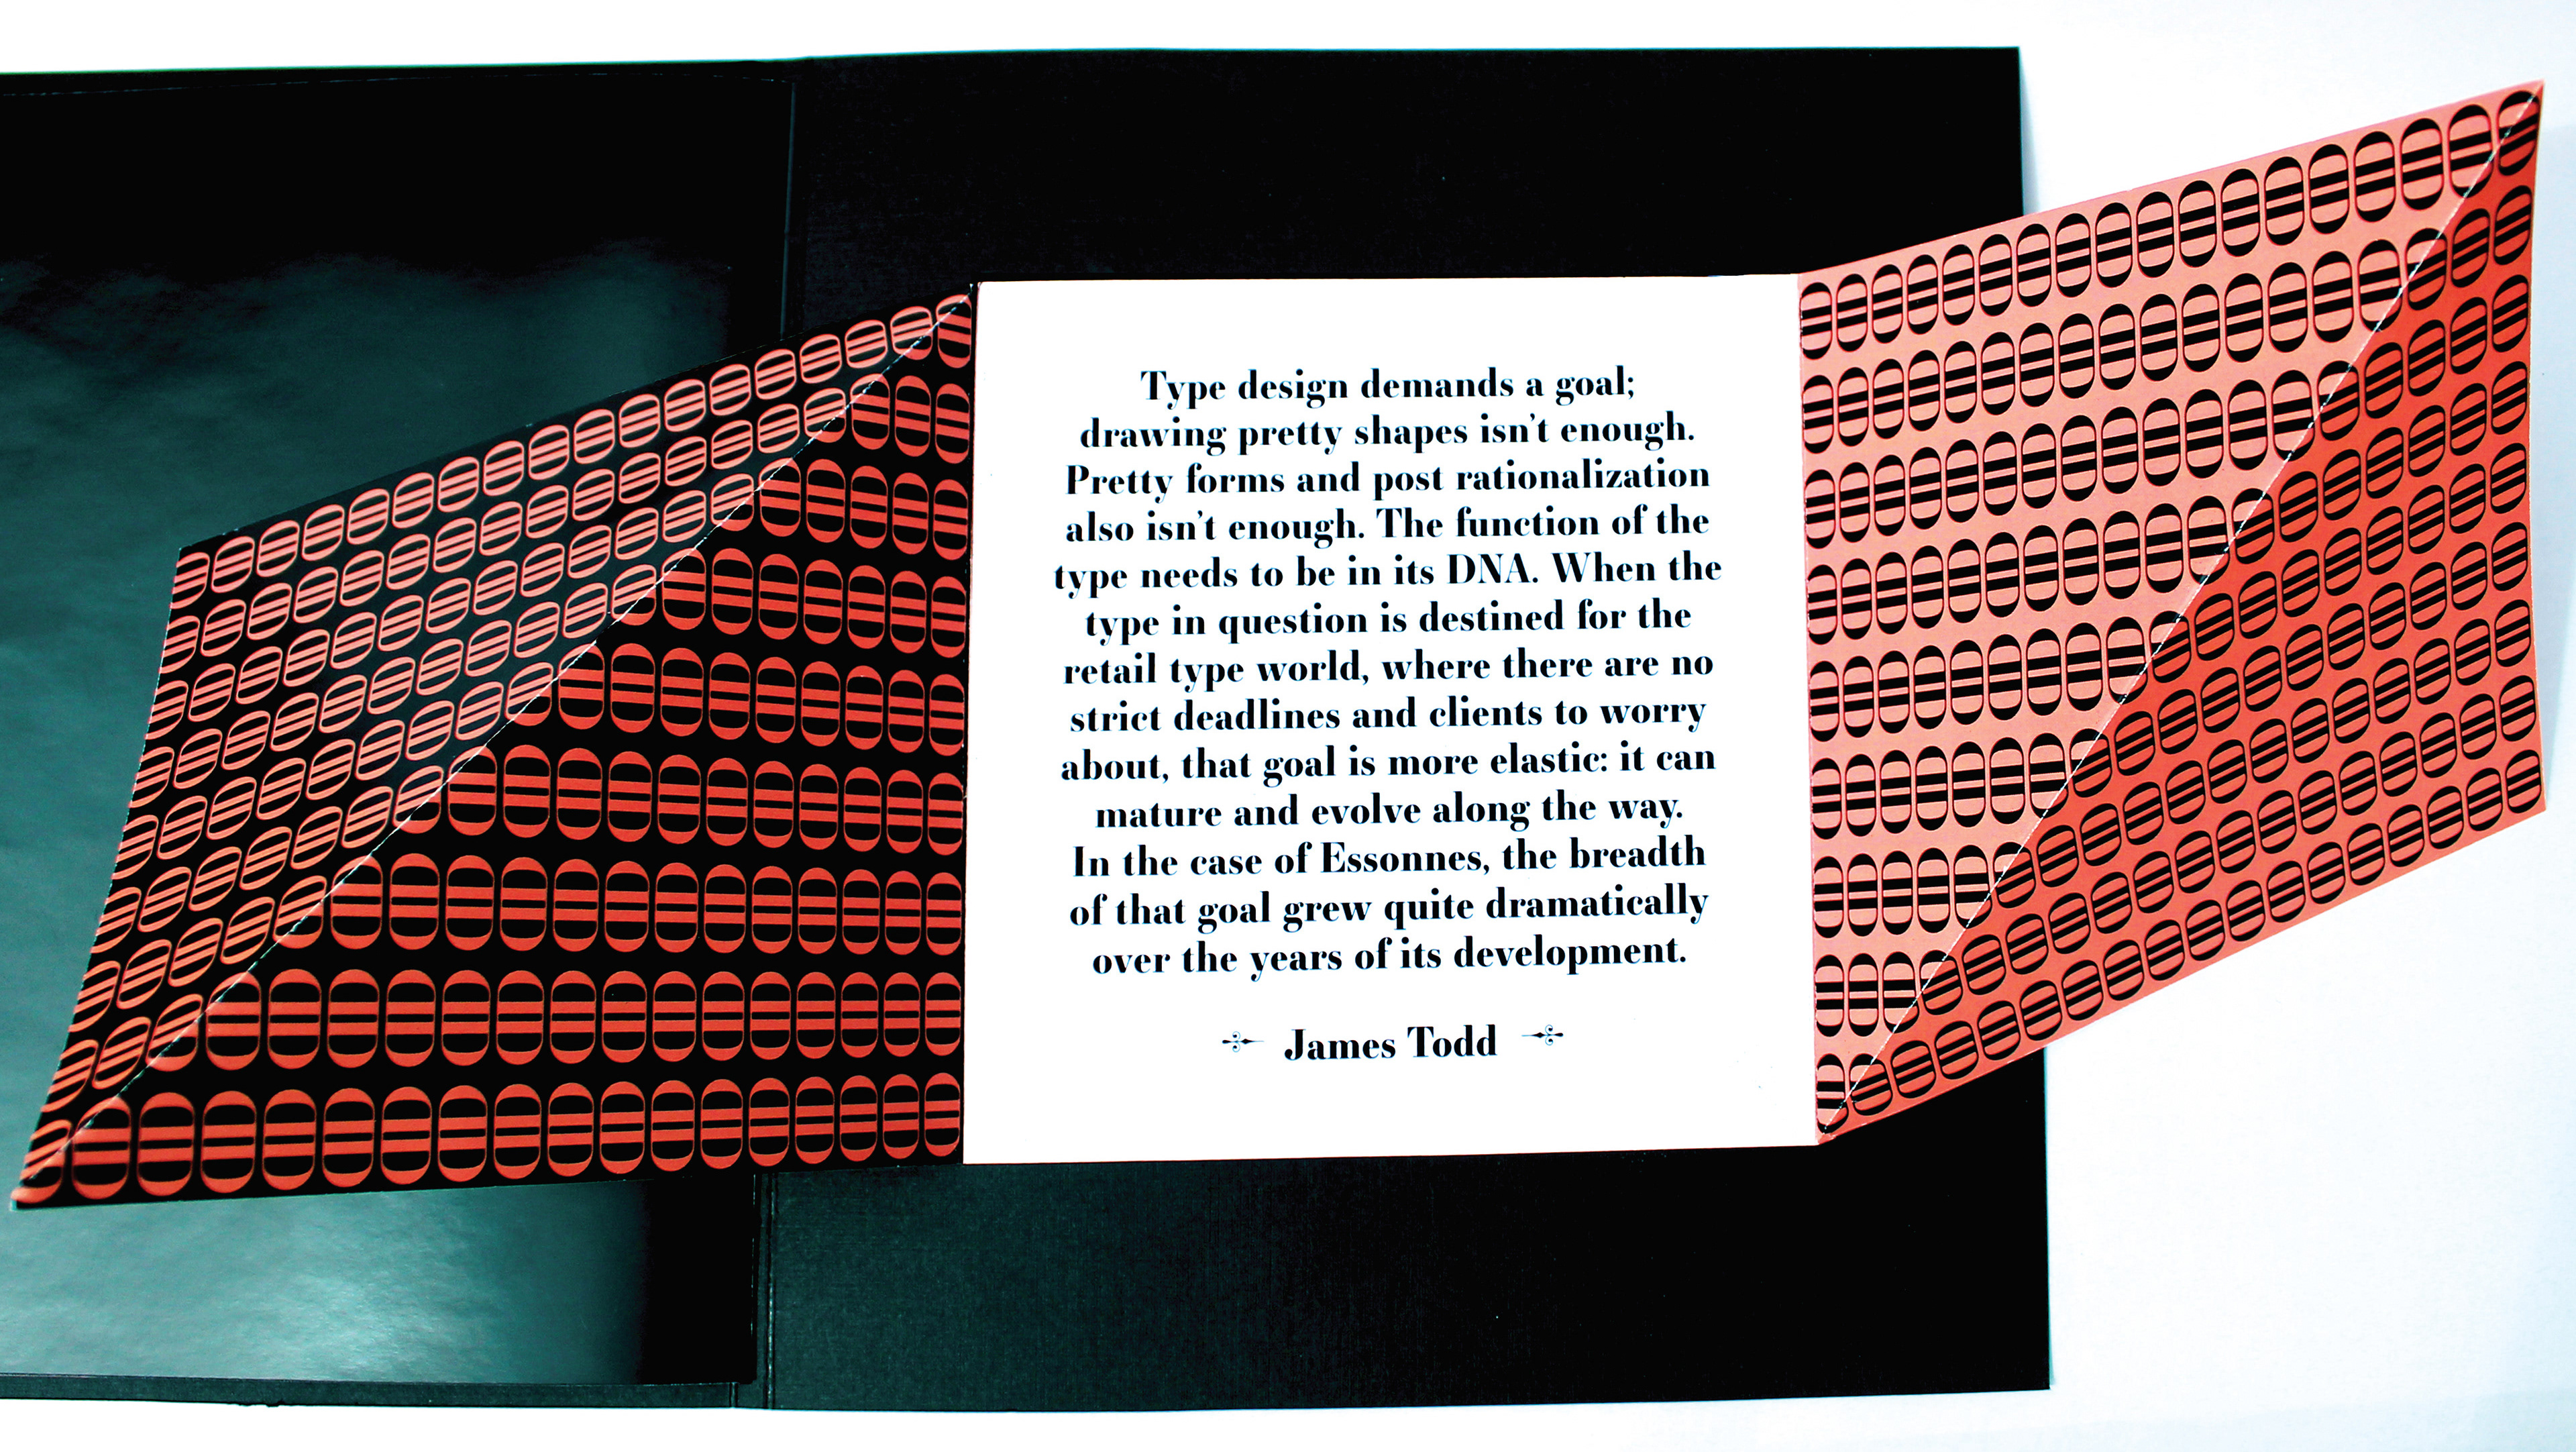 Type design demands a goal;
drawing pretty shapes isn't enough.
Pretty forms and post rationalization
also isn't enough. The function of the
type needs to be in its DNA. When the
type in question is destined for the
retail type world, where there are no
strict deadlines and clients to worry
about, that goal is more elastic: it can
mature and evolve along the way.
In the case of Essonnes, the breadth
of that goal grew quite dramatically
over the years of its development.
James Todd